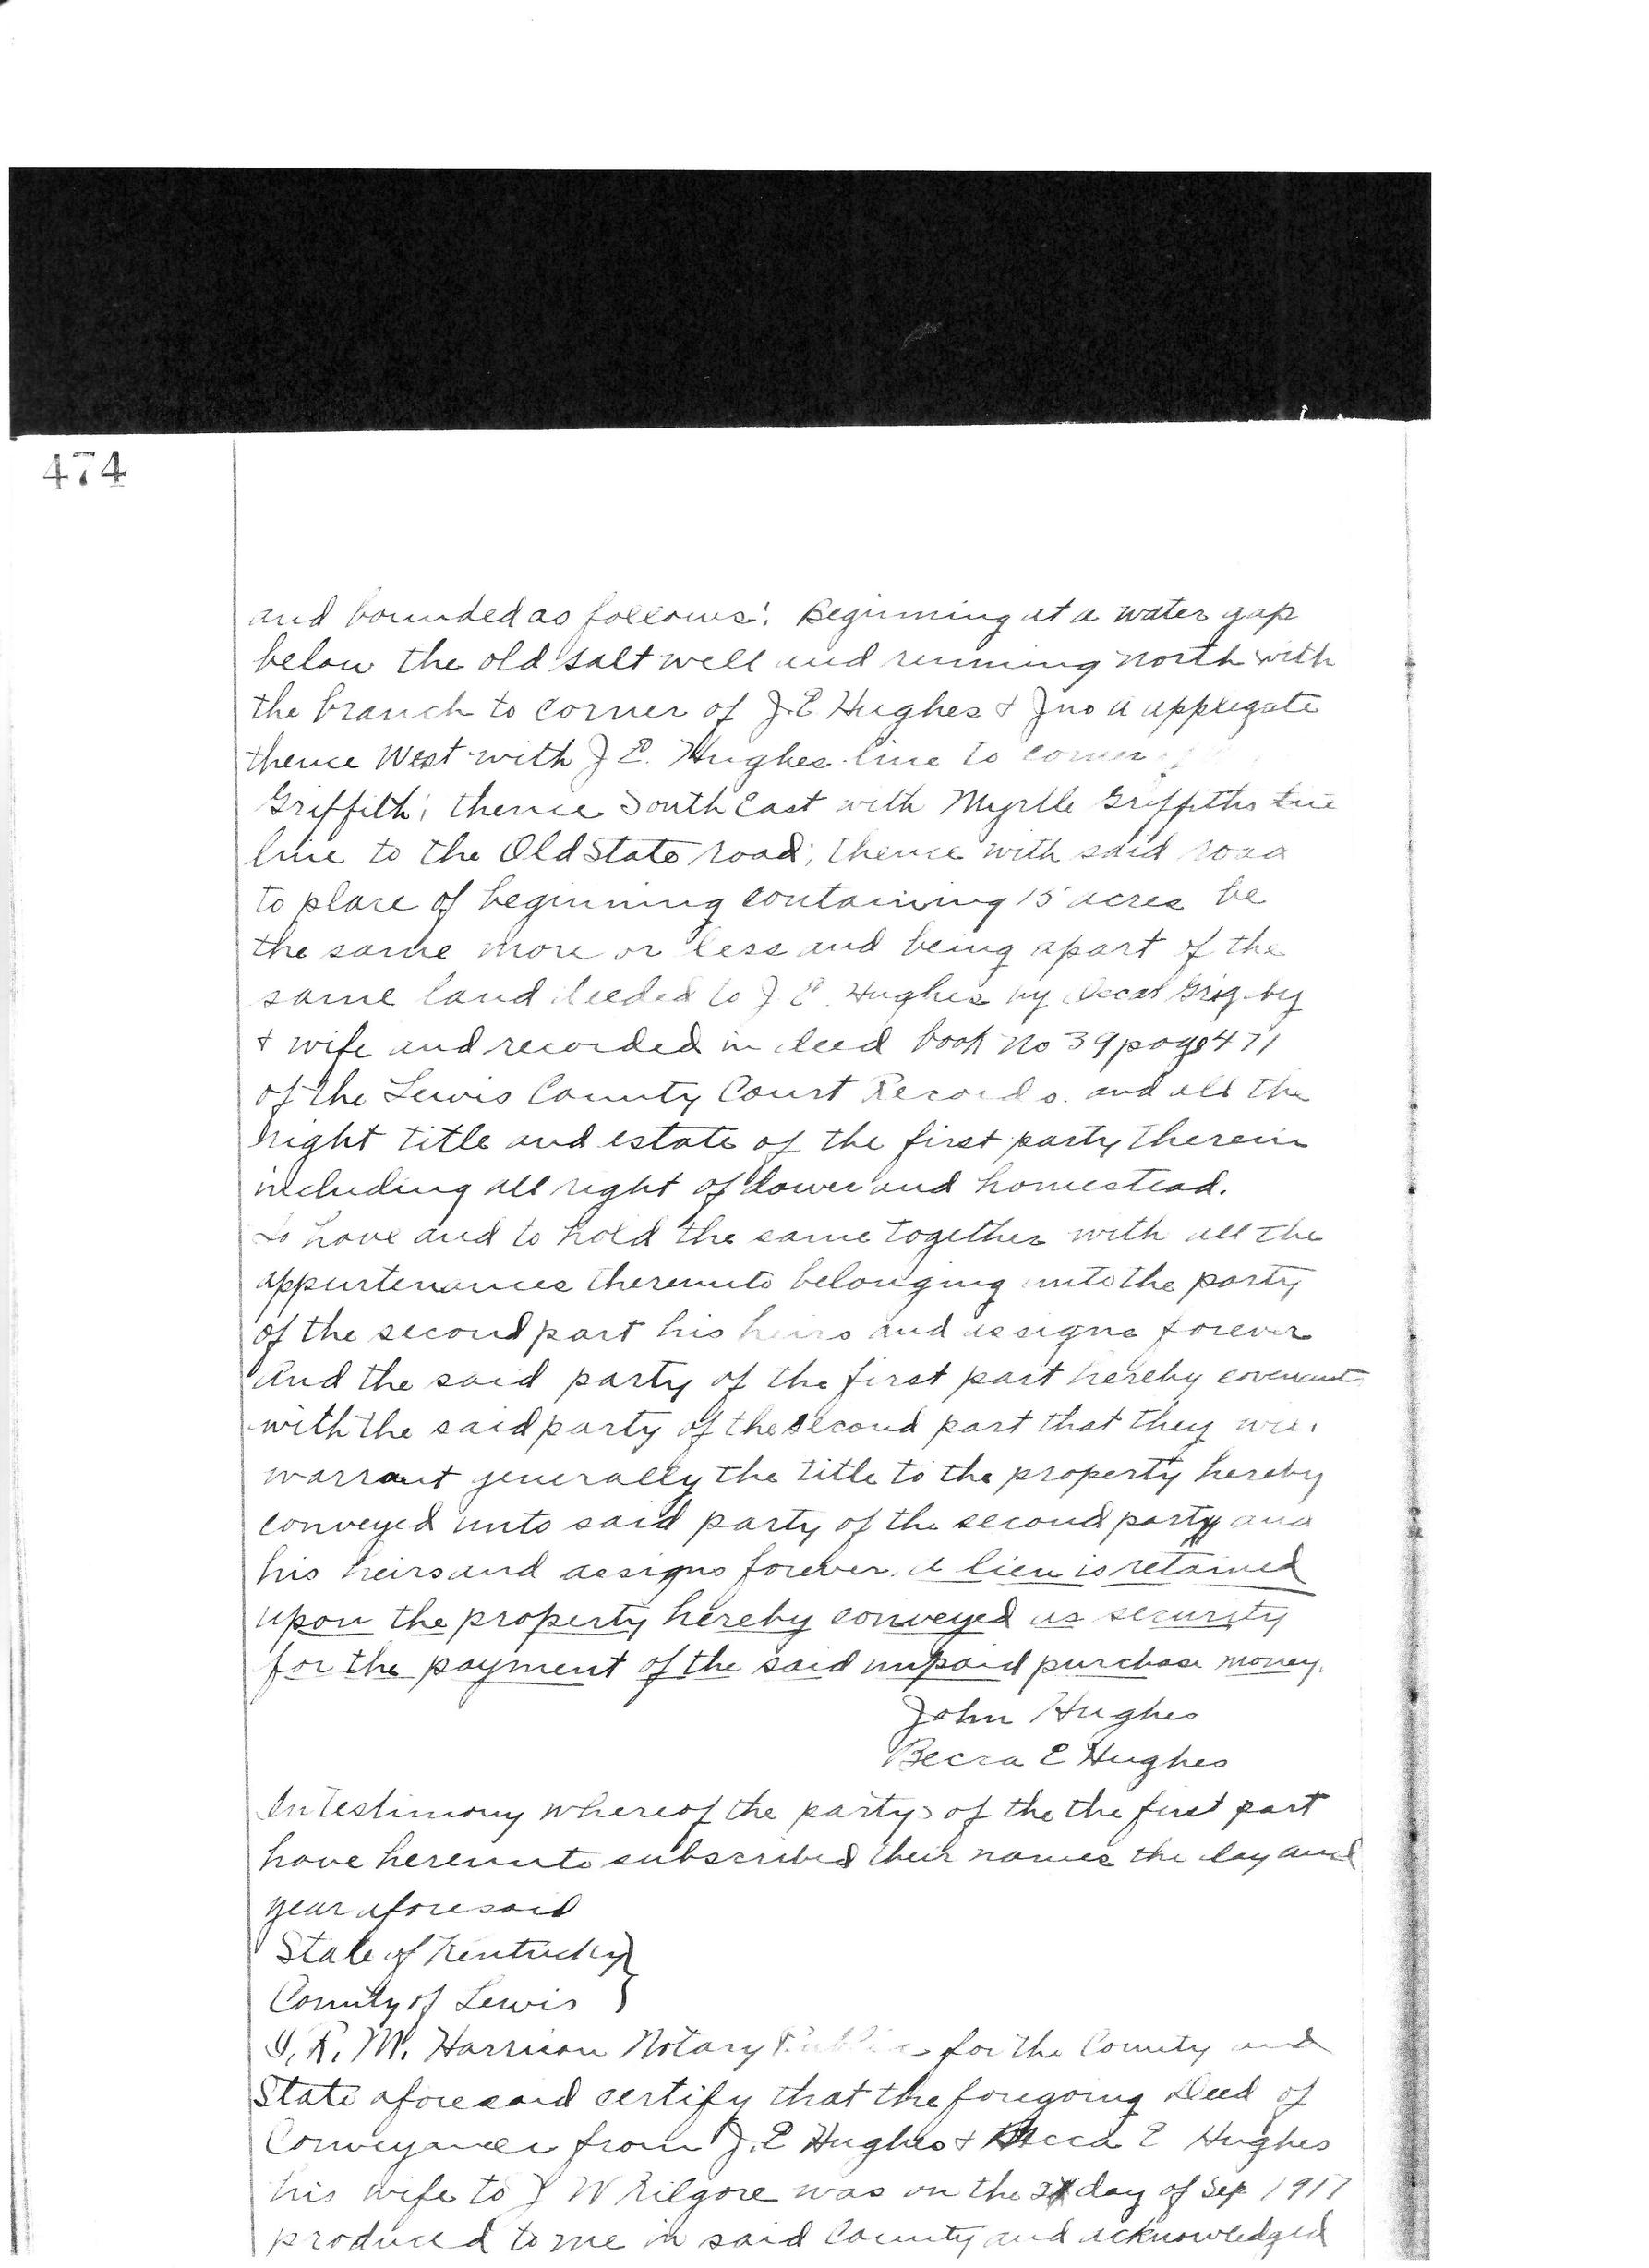 474
and bounded as follows: Beginning at a water gap
below the old salt well and running north with
the branch to corner of J.E Hughes & Jno A applegate
thence West with J E. Hughes line to corner
Griffith; thence South East with Myrtle Griffiths
line to the Old State road; thence with said road
to place of beginning containing 15 acres be
the same more or less and being apart of the
same land deeded to J E. Hughes by Oscar Grigsby
& wife and recorded in deed book no 39 page 471
of the Lewis County Court Records. and all the
right title and estate of the first party therein
including all right of dower and homestead.
To have and to hold the same together with all the
appurtenances thereunto belonging unto the party
of the second part his heirs and assigns forever
And the said party of the first part hereby covenant
with the said party of the second part that they will
warrant generally the title to the property hereby
conveyed unto said party of the second party and
his heirs and assigns forever. A lien is retained
upon the property hereby conveyed as security
for the payment of the said unpaid purchase money.
John Hughes
Becca E Hughes
In Testimony whereof the partys of the the first part
have hereunto subscribed their names the day and
year aforesaid
State of Kentucky }
County of Lewis }
I, R. M. Harrison Notary Public for the County and
State aforesaid certify that the foregoing Deed of
Conveyance from J. E Hughes & Becca E Hughes
his wife to J W Kilgore was on the day of Sep 1917
produced to me in said County and acknowledged